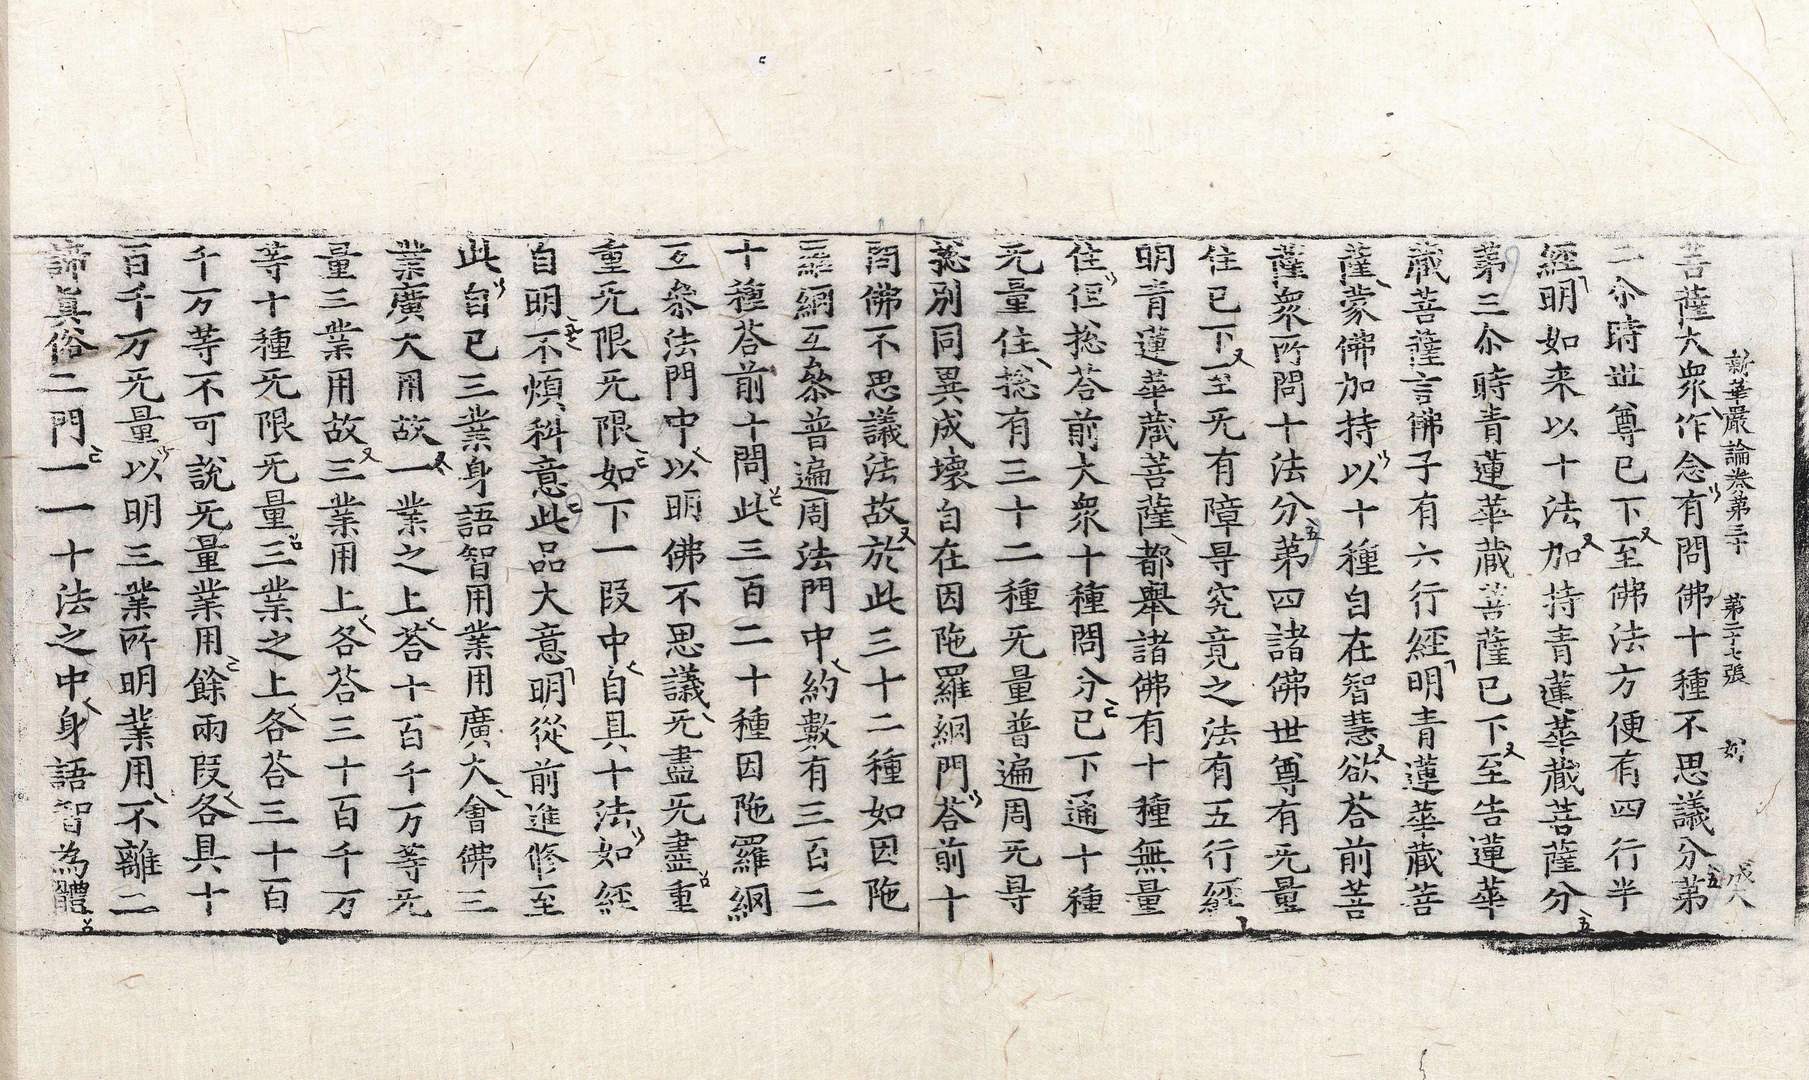 新華嚴論卷第三十 第二十七張
菩薩大衆作念有問佛十種不思議分第
二尒時世尊已下至佛法方便有四行半
經明如来以十法加持青蓮華藏菩薩分
第三尒時青蓮華藏菩薩已下至告蓮華
藏菩薩言佛子有六行經明青蓮華藏菩
薩蒙佛加持以十種自在智慧欲荅前菩
薩衆所問十法分第四諸佛世尊有无量
住已下至无有障㝵究竟之法有五行經
明青蓮華藏菩薩都舉諸佛有十種無量
住但揔荅前大衆十種問分已下通十種
无量住揔有三十二種无量普遍周无㝵
揔別同異成壞自在因陁羅網門荅前十
問佛不思議法故於此三十二種如因陁
羅網互叅普遍周法門中約數有三百二
十種荅前十問此三百二十種因陁羅網
互叅法門中以明佛不思議无盡无盡重
重无限无限如下一段中自具十法如經
自明不煩科意此品大意明從前進修至
此自已三業身語智用業用廣大會佛三
業廣大用故一業之上荅十百千万等无
量三業用故三業用上各荅三十百千万
等十種无限无量三業之上各荅三十百
千万等不可說无量業用餘兩段各具十
百千万无量以明三業所明業用不離二
諦真俗二門一一十法之中身語智為體